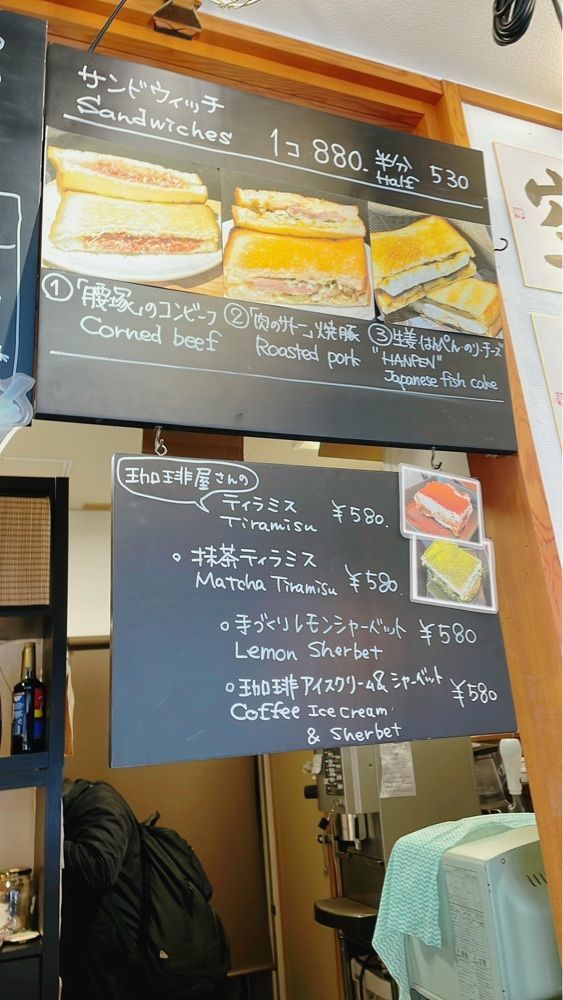 サンドウィッチ
Sandwiches 1コ 880. 半分 Half 530
①「腰塚」のコンビーフ
Corned beef
②「肉のサトー」焼豚
Roasted pork
③生姜はんぺんのり・チーズ
"HANPEN"
Japanese fish cake
珈琲屋さんの
ティラミス
Tiramisu ¥580.
抹茶ティラミス
Matcha Tiramisu ¥580.
手づくりレモンシャーベット ¥580
Lemon Sherbet
珈琲アイスクリーム&シャーベット ¥580
Coffee Ice cream
& Sherbet